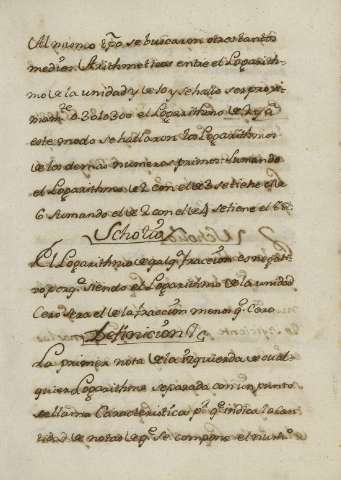 Al mismo tpō se buscaron otros tantos
medios Arithmeticos entre el Logarith-
mo de la unidad y de 10 y se hallo ser
0.3010300 el Logarithmo de 2 y a
este modo se hallaron los Logarithmos
de los demas numeros primos: Sumando
el Logarithmo de 2 con el de 3 se tiene el de
6 Sumando el de 2 con el de 4 se tiene el 8 &.
Scholio
El Logarithmo de qalqr fraccion es negati-
vo porq. siendo el Logarithmo de la unidad
Cero sera el de la fraccion menor q. Cero
Definicion
La primera nota de la izquierda de cual-
quier Logarithmo separada con un punto
se llama Caracteristica pr q. indica la can-
tidad de notas de q. se compone el num.o